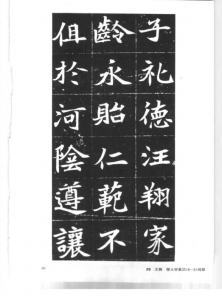 子礼德汪翔家
齡永貽仁範不
徂於河陰遵讓